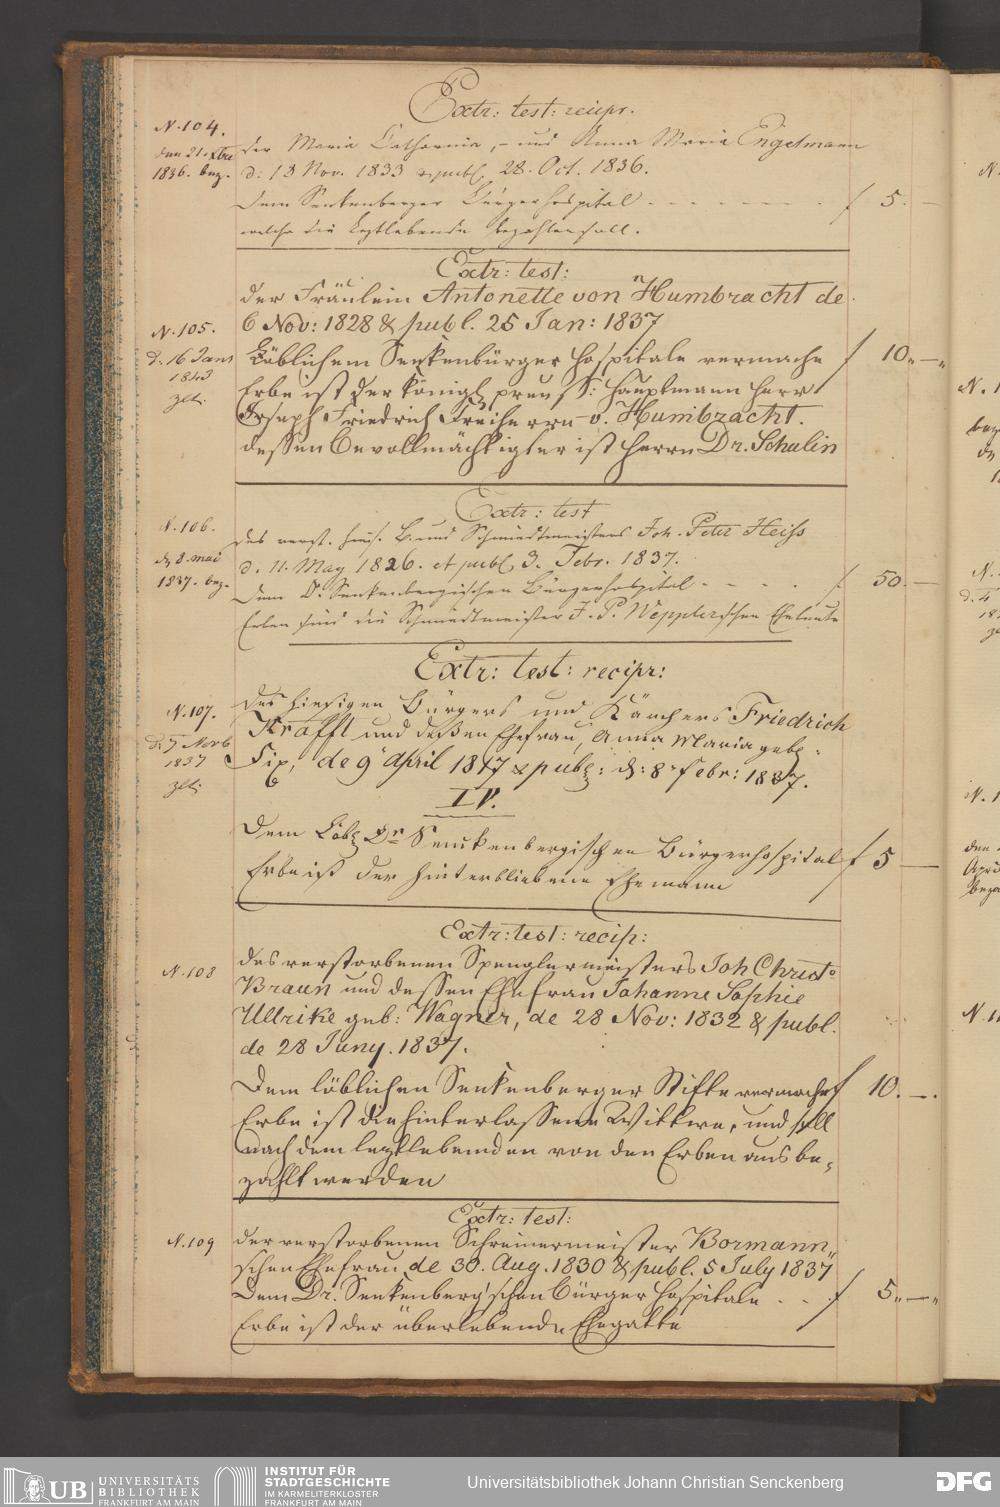 Extr: test: recipr.
N. 104.
den 21. Xbre
1836. bez.
der Maria Catharina, - und Anna Maria Engelmann
d: 13 Nov. 1833 & publ. 28. Oct. 1836.
dem Senkenberger Bürgerhospital - - - - - - f 5. —
welche die Letztlebende bezahlen soll.
Extr: test:
der Fräulein Antonette von Humbracht de
6 Nov: 1828 & publ. 25 Jan: 1837
N. 105.
d. 16 Jans
1843
zlt.
Löblichem Senkenbürger Hospitale vermache f 10„—„
Erbe ist der königl. preuß: Hauptmann Herr
Joseph Friedrich Freiherrn v. Humbracht.
dessen Bevollmächtigter ist Herrn Dr. Schulin
Extr: test
N. 106.
d. 8. mai
1837. bez.
des verst. hies. B. und Schmiedtmeisters Joh. Peter Heiss
d. 11. May 1826. et publ. 3. Febr. 1837.
Dem Dr. Senkenbergischen Bürgerhospital - - - . f 50. —
Erben sind die Schmiedtmeister J. P. Wepplerschen Eheleute
Extr: test: recipr:
N. 107.
d. 7 Novb
1837
zlt.
des hiesigen Bürgers und Kärchers Friedrich
Krafft und deßen Ehefrau, Anna Maria geb:
Six, de 9 April 1817 & publ: d: 8 Febr: 1837.
IV.
Dem Löbl Dr Senckenbergischen Bürgerhospital f 5 —
Erbe ist der hinterbliebene Ehemann
Extr: test: recip:
N. 108
des verstorbenen Spenglermeisters Joh Christ:
Braun und dessen Ehefrau Johanne Sophie
Ullrike geb: Wagner, de 28 Nov: 1832 & publ.
de 28 Juny. 1837.
Dem löblichen Senkenberger Stifte vermache f 10. —.
Erbe ist die hinterlassene Wittwe, und soll
nach dem letztlebenden von den Erben aus be-
zahlt werden
Extr: test:
N. 109
der verstorbenen Schreinermeister Bormann„
schen Ehefrau de 30. Aug. 1830 & publ. 5 July 1837
Dem Dr. Senkenberg'schen Bürger Hospitale . . f 5„—„
Erbe ist der überlebende Ehegatte
UB UNIVERSITÄTS
BIBLIOTHEK
FRANKFURT AM MAIN
INSTITUT FÜR
STADTGESCHICHTE
IM KARMELITERKLOSTER
FRANKFURT AM MAIN
Universitätsbibliothek Johann Christian Senckenberg
DFG